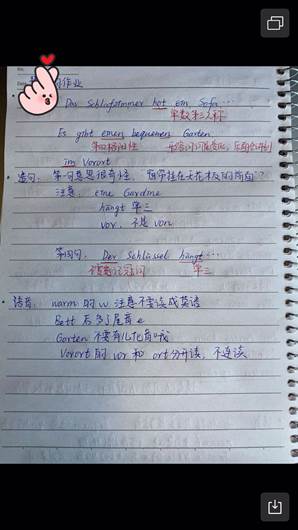 作业
Das Schlafzimmer hat ein Sofa...
单数第三人称
Es gibt einen bequemen Garten.
第四格阳性
im Vorort
造句: 第一句意思很有意思, 窗帘挂在天花板的前面?
注意: eine Gardine
hängt 单三
vor, 不是 von
第四句: Der Schlüssel hängt...
单三
语音: warm 的 w 注意不要读成英语
Bett 后多了尾音 e
Garten 不要有儿化音哦
Vorort 的 vor 和 ort 分开读, 不连读